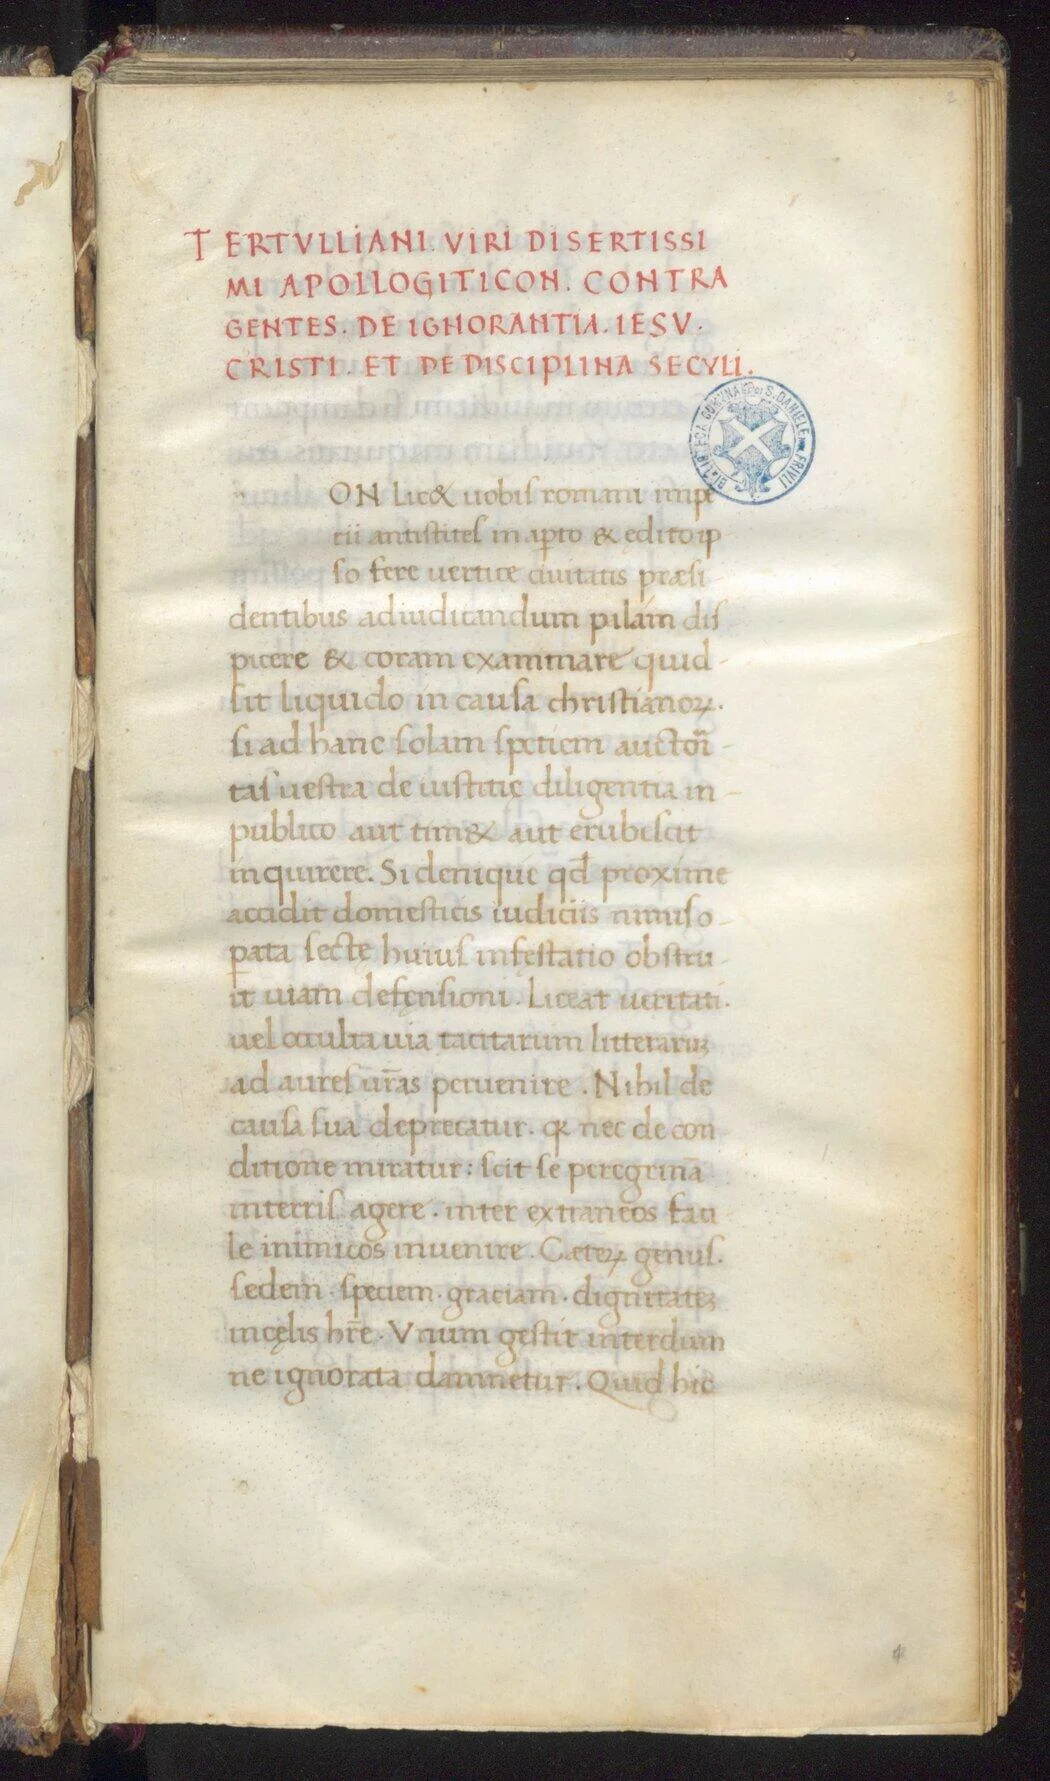 2
TERTVLLIANI. VIRI DISERTISSI
MI APOLLOGITICON. CONTRA
GENTES. DE IGNORANTIA. IESV.
CRISTI. ET DE DISCIPLINA SECVLI.
BIBLIOTECA COMUNALE DI S. DANIELE FRIULI
ON lic& uobis romani impe
rii antistites in aꝑto & ędito ip
so fere uertice ciuitatis præsi
dentibus adiudicandum pilám dis
picere & coram examinare quid
sit liquido in causa christianoꝝ.
si ad hanc solam spetiem auctori
tas uestra de iustitię diligentia in
publico aut tim& aut erubescit
inquirere. Si denique qđ proxime
accidit domesticis iudiciis nimis o
ꝑata sectę huius infęstatio obstru
it uiam defęnsioni. Liceat ueritati.
uel occulta uia tacitarum litterarū
ad aures ur̄as peruenire. Nihil de
causa sua deprecatur. qꝛ nec de con
ditione miratur: scit se peregrinā
interris agere. inter extraneos faci
le inimicos inuenire. Cæteꝝ genus.
sedem. speciem. graciam. dignitatē
incęlis hr̄e. Vnum gęstit interdum
ne ignorata damnetur. Quid hic